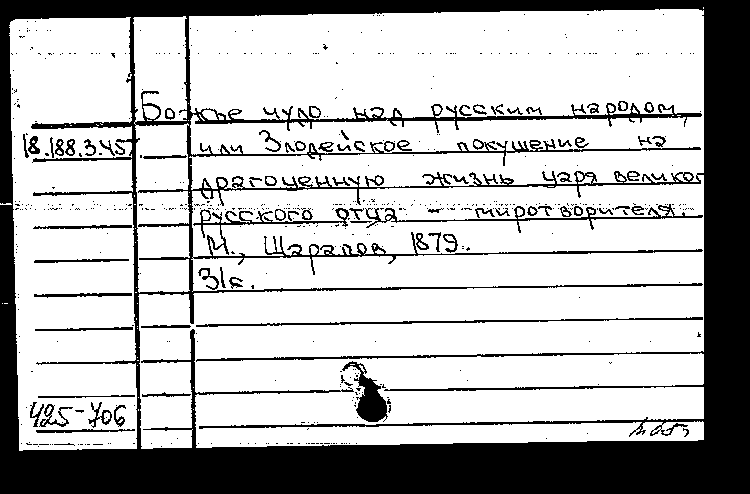 Божье чудо над русским народом,
18.188.3.457 или Злодейское покушение на
драгоценную жизнь царя велико
русского отца - миротворителя.
М., Шарапов, 1879.
31с.
425-706